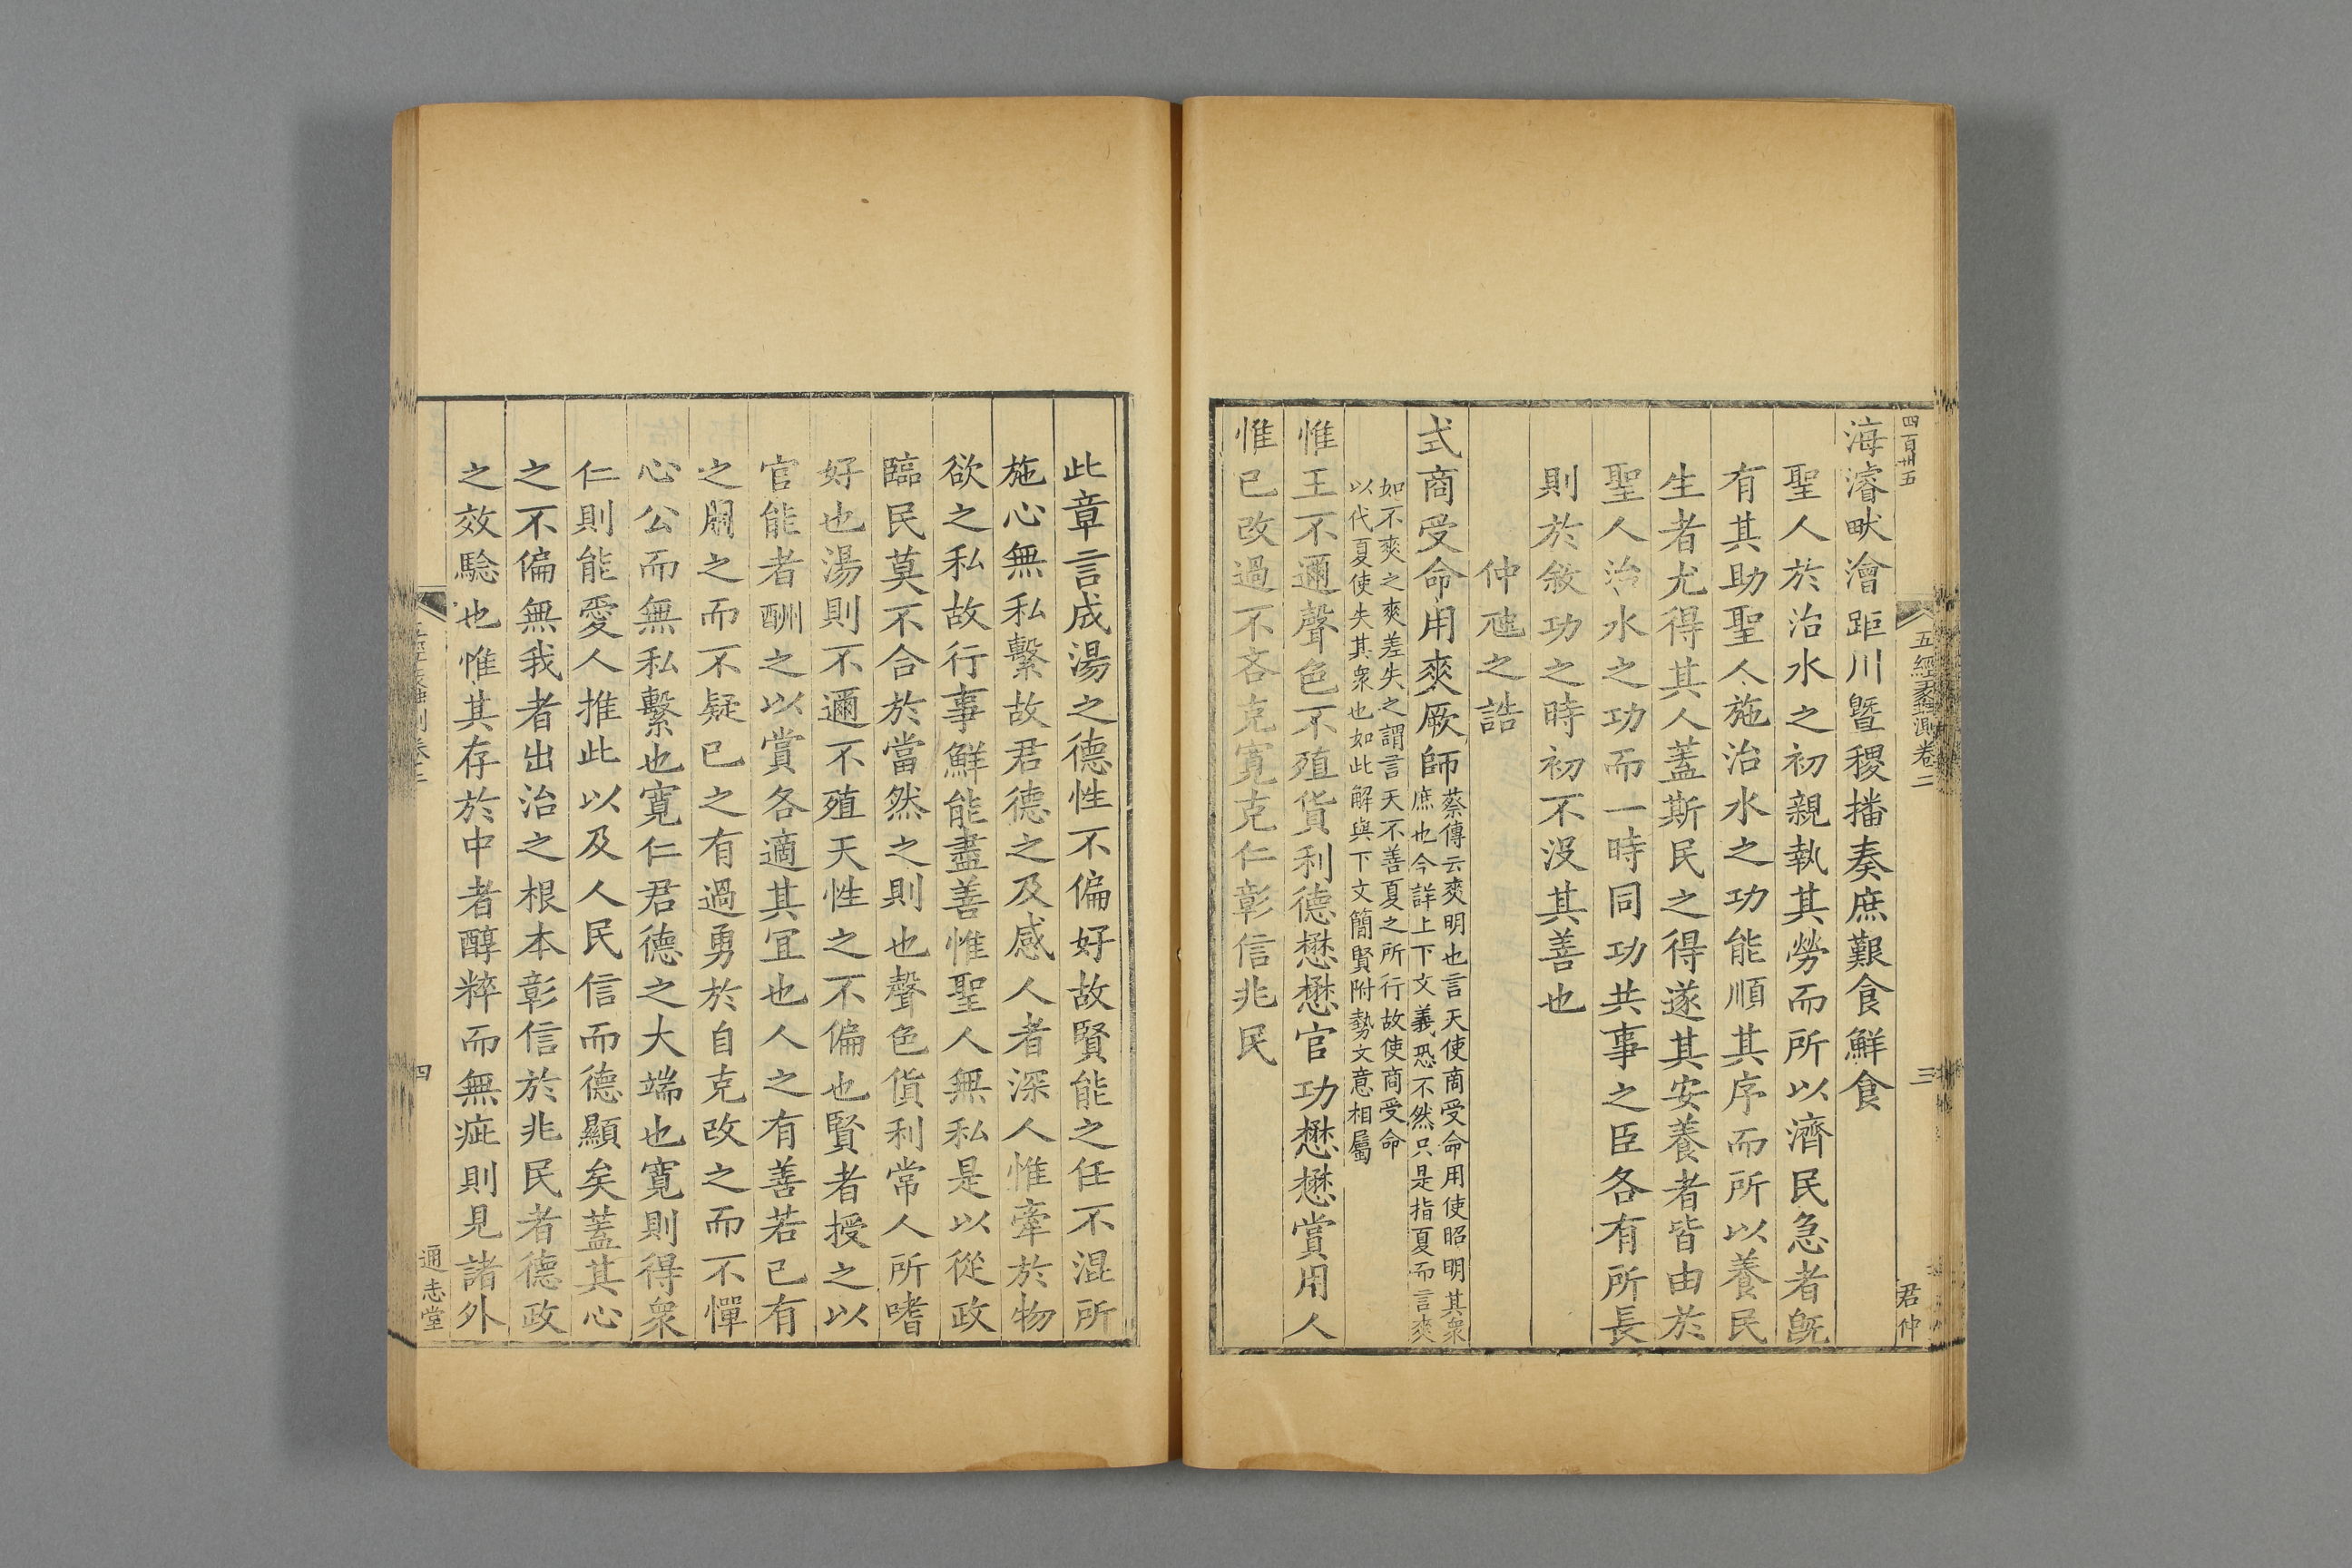 四百卅五
五經蠡測卷二
三
君仲
海濬畎澮距川曁稷播奏庶艱食鮮食
聖人於治水之初親執其勞而所以濟民急者旣
有其助聖人施治水之功能順其序而所以養民
生者尤得其人蓋斯民之得遂其安養者皆由於
聖人治水之功而一時同功共事之臣各有所長
則於敘功之時初不沒其善也
仲虺之誥
式商受命用爽厥師
蔡傳云爽明也言天使商受命用使昭明其衆
庶也今詳上下文義恐不然只是指夏而言爽
如不爽之爽差失之謂言天不善夏之所行故使商受命
以代夏使失其衆也如此解與下文簡賢附勢文意相屬
惟王不邇聲色不殖貨利德懋懋官功懋懋賞用人
惟己改過不吝克寛克仁彰信兆民
此章言成湯之德性不偏好故賢能之任不混所
施心無私繫故君德之及感人者深人惟牽於物
欲之私故行事鮮能盡善惟聖人無私是以從政
臨民莫不合於當然之則也聲色貨利常人所嗜
好也湯則不邇不殖天性之不偏也賢者授之以
官能者酬之以賞各適其冝也人之有善若己有
之用之而不疑已之有過勇於自克改之而不憚
心公而無私繫也寛仁君德之大端也寛則得衆
仁則能愛人推此以及人民信而德顯矣蓋其心
之不偏無我者出治之根本彰信於兆民者德政
之效驗也惟其存於中者醇粹而無疵則見諸外
四
通志堂